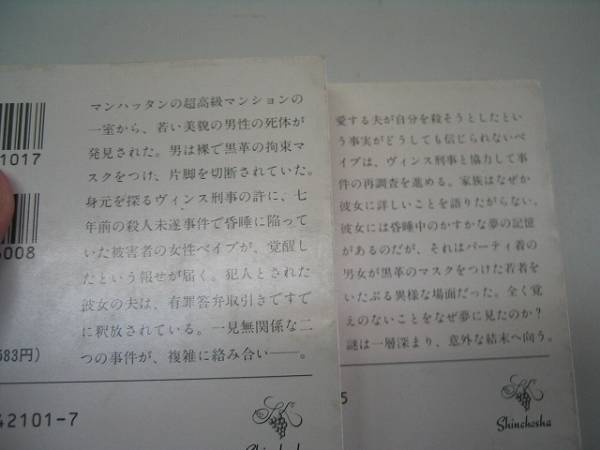 マンハッタンの超高級マンションの
一室から、若い美貌の男性の死体が
発見された。男は裸で黒革の拘束マ
スクをつけ、片脚を切断されていた。
身元を探るヴィンス刑事の許に、七
年前の殺人未遂事件で昏睡に陥って
いた被害者の女性ベイブが、覚醒し
たという報せが届く。犯人とされた
彼女の夫は、有罪答弁取引きですで
に釈放されている。一見無関係な二
つの事件が、複雑に絡み合い──。
1017
6008
583円)
42101-7
愛する夫が自分を殺そうとしたとい
う事実がどうしても信じられないベ
イブは、ヴィンス刑事と協力して事
件の再調査を進める。家族はなぜか
彼女に詳しいことを語りたがらない。
彼女には昏睡中のかすかな夢の記憶
があるのだが、それはパーティ着の
男女が黒革のマスクをつけた若者を
いたぶる異様な場面だった。全く覚
えのないことをなぜ夢に見たのか?
謎は一層深まり、意外な結末へ向う。
5
Shinchosha